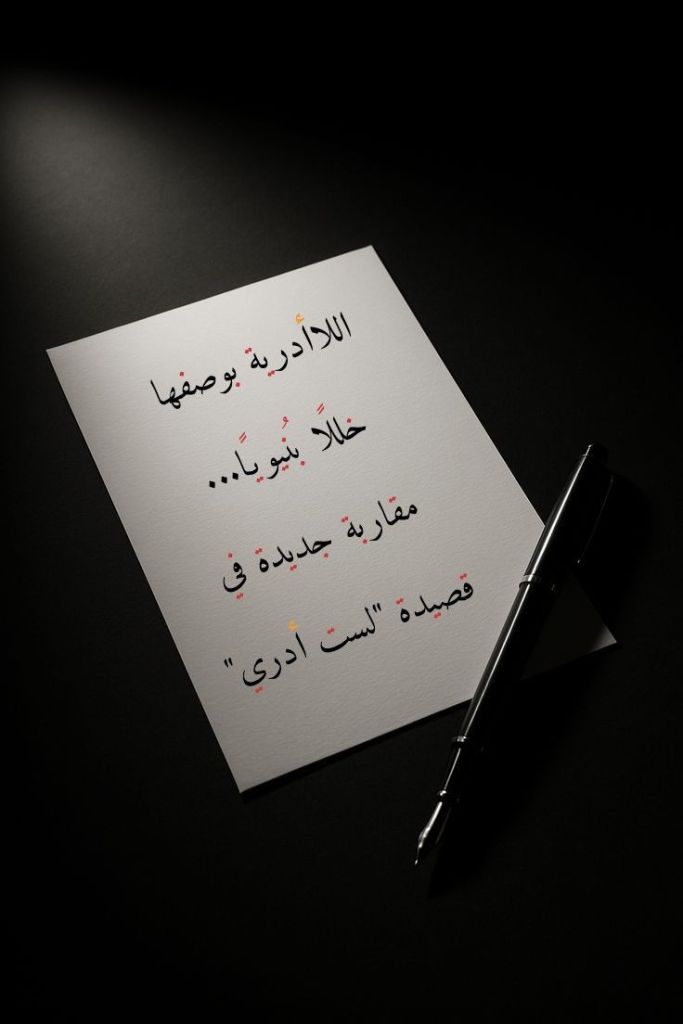 اللاأدرية بوصفها
خللًا بنُيويًا...
مقاربة جديدة في
قصيدة "لست أدري"